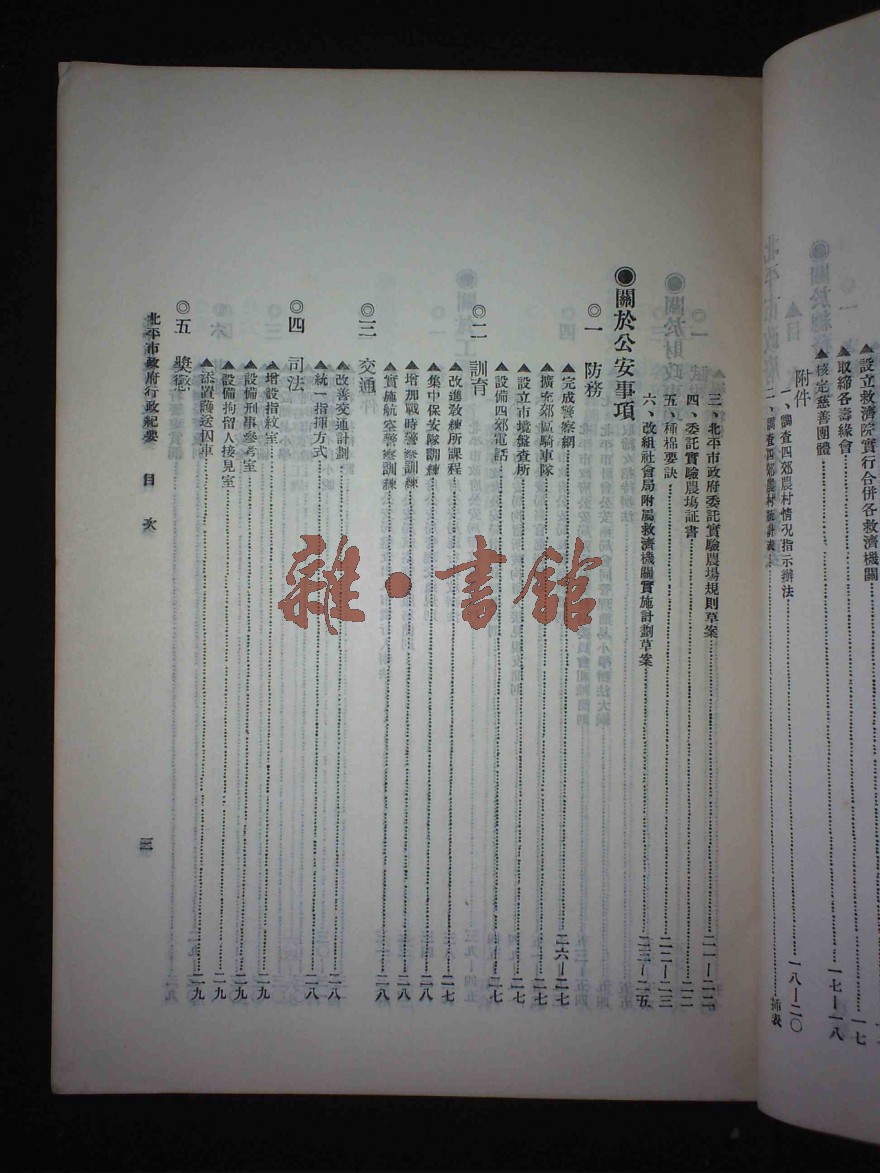 ▲設立救濟院實行合併各救濟機關 一七
▲取締各壽緣會 一七—一八
▲核定慈善團體
附件
一、調查四郊農村情況指示辦法 一八—二〇
二、調查四郊農村統計表 插表
三、北平市政府委託實驗農場規則草案 二一—二二
四、委託實驗農場証書 二二
五、種棉要訣 二二—二三
六、改組社會局附屬救濟機關實施計劃草案 二三—二五
◉關於公安事項
◎一 防務
▲完成警察網 二六—二七
▲擴充郊區騎車隊 二七
▲設立市境盤查所 二七
▲設備四郊電話 二七
◎二 訓育
▲改進教練所課程 二七
▲集中保安隊訓練 二八
▲增加戰時警察訓練 二八
▲實施航空警察訓練 二八
◎三 交通
▲改善交通計劃 二八
▲統一指揮方式 二八
◎四 司法
▲增設指紋室 二九
▲設備刑事參考室 二九
▲設備拘留人接見室 二九
▲添置護送囚車 二九
◎五 獎懲
北平市政府行政紀要 目次 三
雜·書館